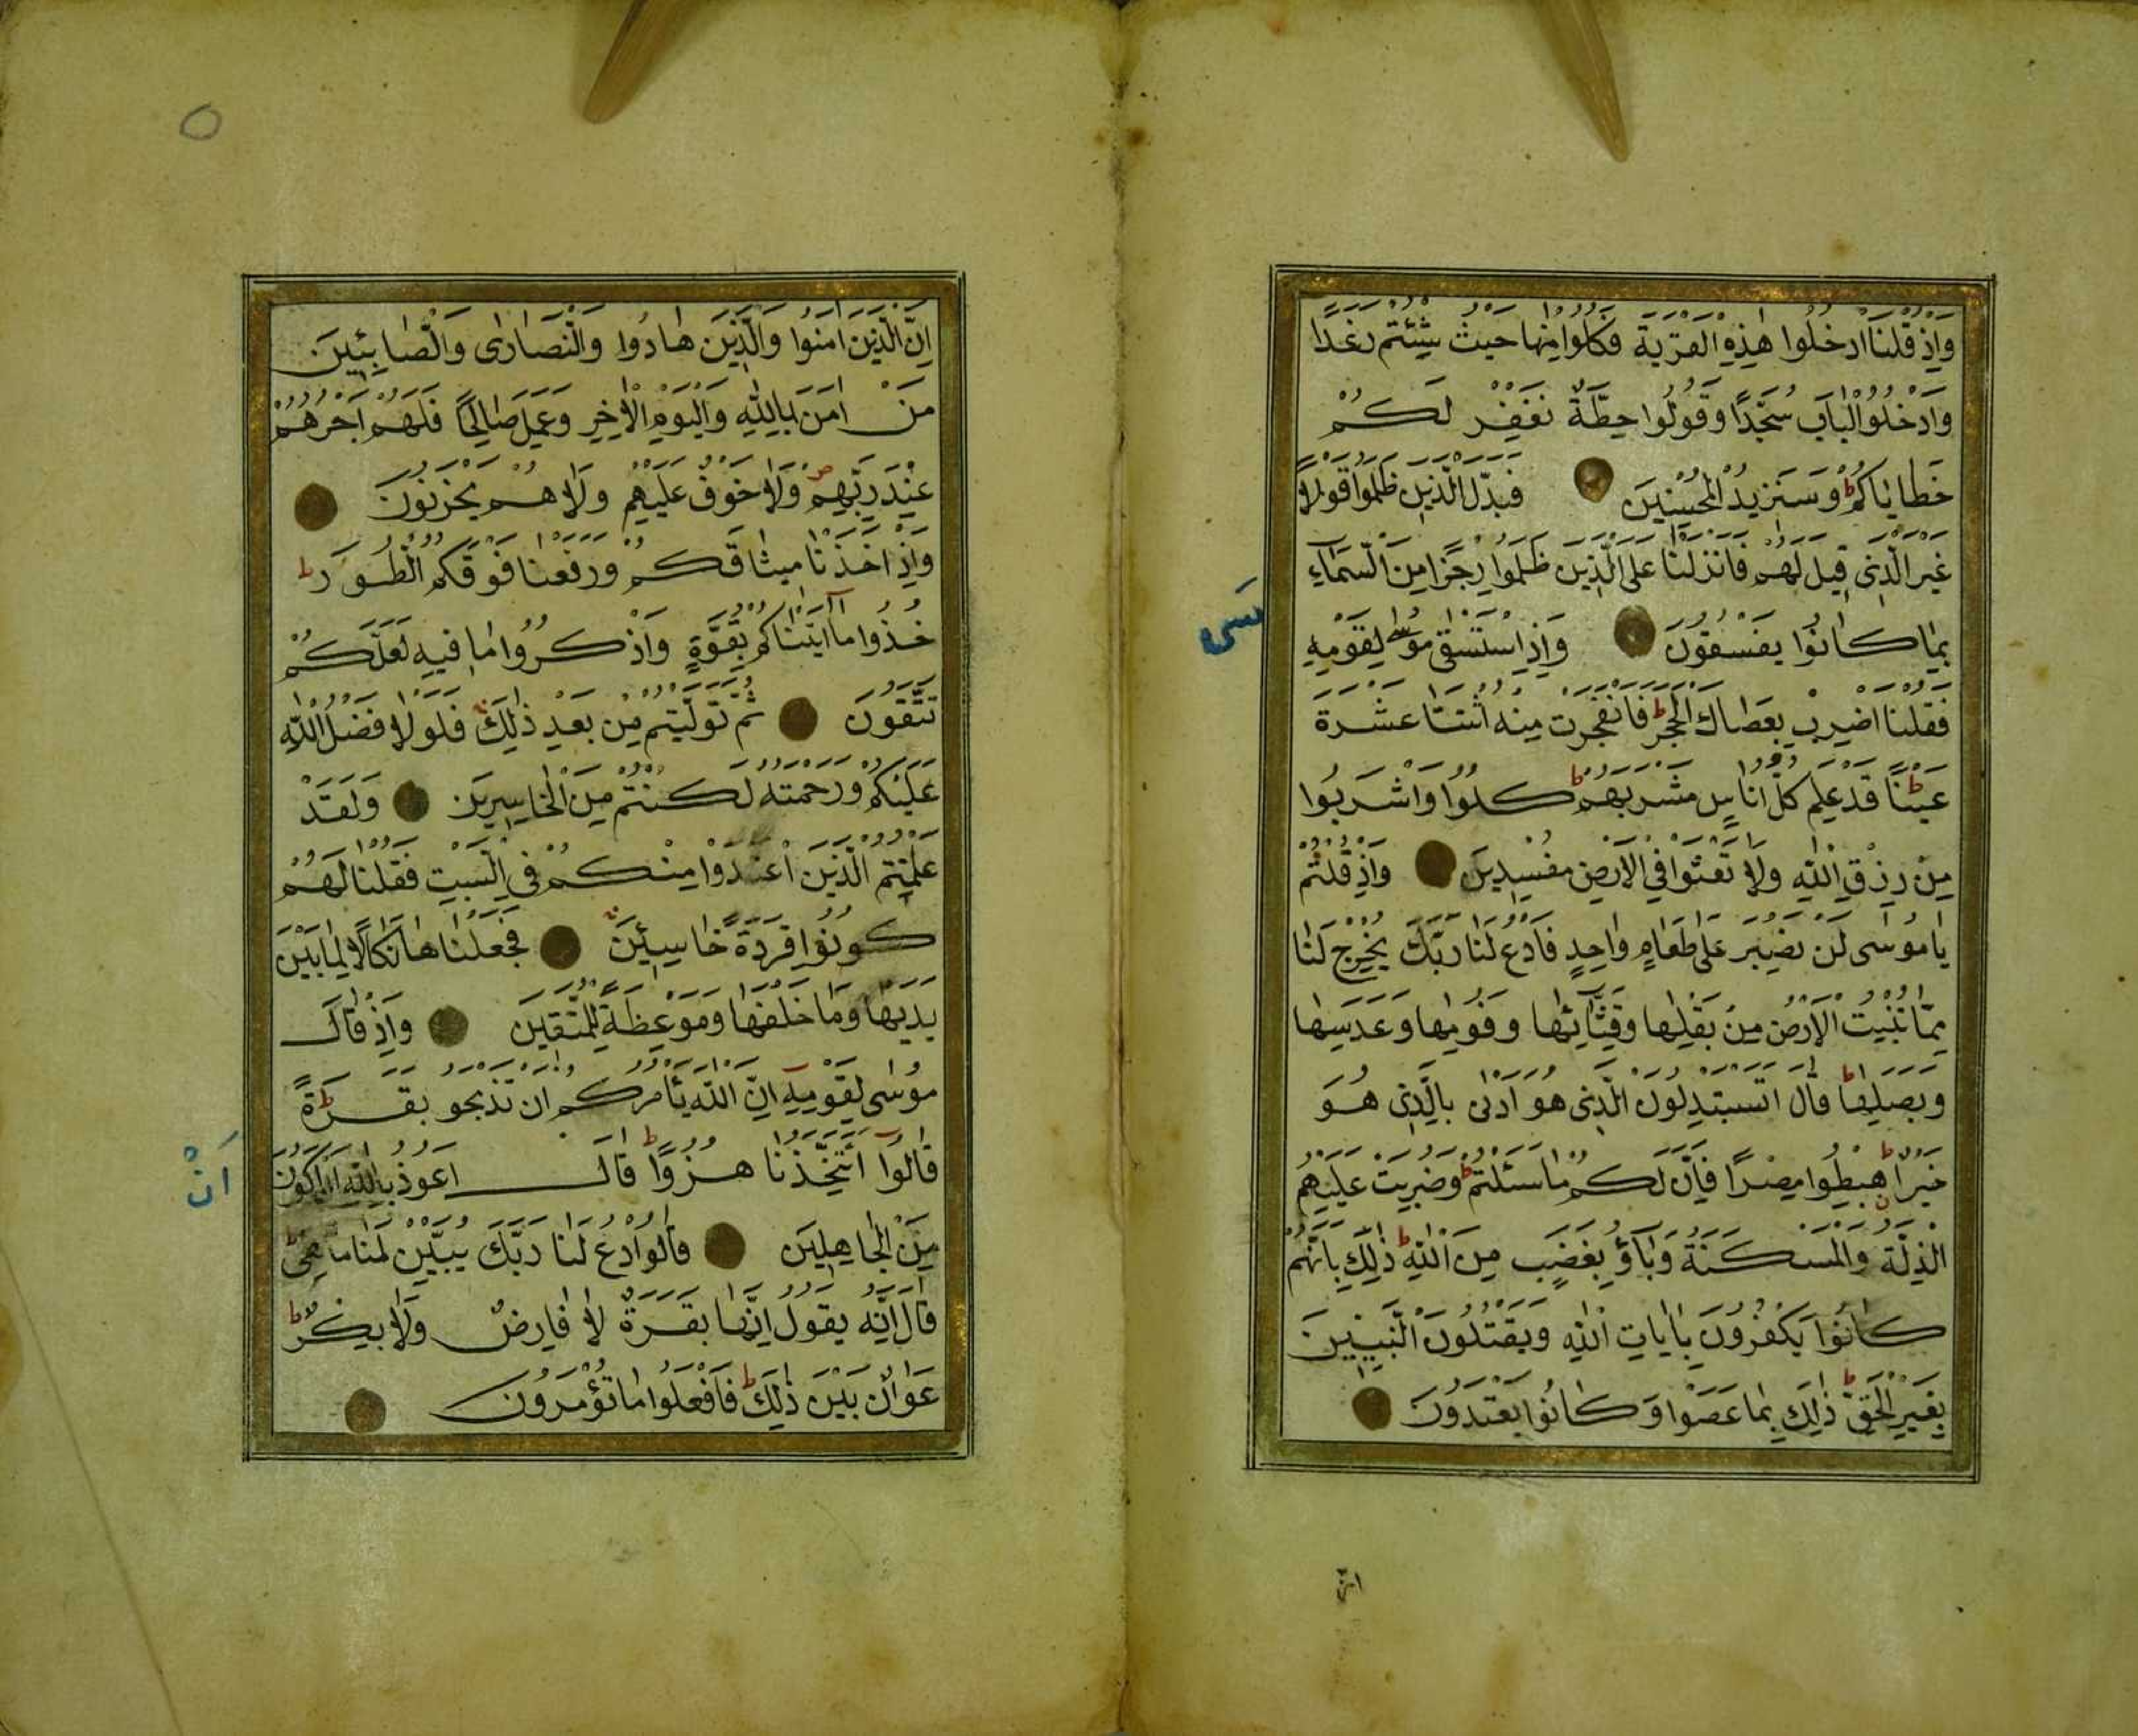 وَاِذْ قُلْنَا ادْخُلُوا هٰذِهِ الْقَرْيَةَ فَكُلُوا مِنْهَا حَيْثُ شِئْتُمْ رَغَدًا
وَادْخُلُوا الْبَابَ سُجَّدًا وَقُولُوا حِطَّةٌ نَغْفِرْ لَكُمْ
خَطَايَاكُمْ ط وَسَنَزِيدُ الْمُحْسِنِينَ فَبَدَّلَ الَّذِينَ ظَلَمُوا قَوْلًا
غَيْرَ الَّذِى قِيلَ لَهُمْ فَاَنْزَلْنَا عَلَى الَّذِينَ ظَلَمُوا رِجْزًا مِنَ السَّمَآءِ
بِمَا كَانُوا يَفْسُقُونَ وَاِذِ اسْتَسْقٰى مُوسٰى لِقَوْمِهِ
فَقُلْنَا اضْرِبْ بِعَصَاكَ الْحَجَرَ ط فَانْفَجَرَتْ مِنْهُ اثْنَتَا عَشْرَةَ
عَيْنًا ط قَدْ عَلِمَ كُلُّ اُنَاسٍ مَشْرَبَهُمْ ط كُلُوا وَاشْرَبُوا
مِنْ رِزْقِ اللّٰهِ وَلَا تَعْثَوْا فِى الْاَرْضِ مُفْسِدِينَ وَاِذْ قُلْتُمْ
يَا مُوسٰى لَنْ نَصْبِرَ عَلٰى طَعَامٍ وَاحِدٍ فَادْعُ لَنَا رَبَّكَ يُخْرِجْ لَنَا
مِمَّا تُنْبِتُ الْاَرْضُ مِنْ بَقْلِهَا وَقِثَّائِهَا وَفُومِهَا وَعَدَسِهَا
وَبَصَلِهَا ط قَالَ اَتَسْتَبْدِلُونَ الَّذِى هُوَ اَدْنٰى بِالَّذِى هُوَ
خَيْرٌ ط اهْبِطُوا مِصْرًا فَاِنَّ لَكُمْ مَا سَئَلْتُمْ ط وَضُرِبَتْ عَلَيْهِمُ
الذِّلَّةُ وَالْمَسْكَنَةُ وَبَاؤُ بِغَضَبٍ مِنَ اللّٰهِ ط ذٰلِكَ بِاَنَّهُمْ
كَانُوا يَكْفُرُونَ بِاٰيَاتِ اللّٰهِ وَيَقْتُلُونَ النَّبِيِّينَ
بِغَيْرِ الْحَقِّ ط ذٰلِكَ بِمَا عَصَوْا وَكَانُوا يَعْتَدُونَ
اِنَّ
اِنَّ الَّذِينَ اٰمَنُوا وَالَّذِينَ هَادُوا وَالنَّصَارٰى وَالصَّابِئِينَ
مَنْ اٰمَنَ بِاللّٰهِ وَالْيَوْمِ الْاٰخِرِ وَعَمِلَ صَالِحًا فَلَهُمْ اَجْرُهُمْ
عِنْدَ رَبِّهِمْ ص وَلَا خَوْفٌ عَلَيْهِمْ وَلَا هُمْ يَحْزَنُونَ
وَاِذْ اَخَذْنَا مِيثَاقَكُمْ وَرَفَعْنَا فَوْقَكُمُ الطُّورَ ط
خُذُوا مَا اٰتَيْنَاكُمْ بِقُوَّةٍ وَاذْكُرُوا مَا فِيهِ لَعَلَّكُمْ
تَتَّقُونَ ثُمَّ تَوَلَّيْتُمْ مِنْ بَعْدِ ذٰلِكَ فَلَوْلَا فَضْلُ اللّٰهِ
عَلَيْكُمْ وَرَحْمَتُهُ لَكُنْتُمْ مِنَ الْخَاسِرِينَ وَلَقَدْ
عَلِمْتُمُ الَّذِينَ اعْتَدَوْا مِنْكُمْ فِى السَّبْتِ فَقُلْنَا لَهُمْ
كُونُوا قِرَدَةً خَاسِئِينَ فَجَعَلْنَاهَا نَكَالًا لِمَا بَيْنَ
يَدَيْهَا وَمَا خَلْفَهَا وَمَوْعِظَةً لِلْمُتَّقِينَ وَاِذْ قَالَ
مُوسٰى لِقَوْمِهِ اِنَّ اللّٰهَ يَأْمُرُكُمْ اَنْ تَذْبَحُو بَقَرَةً ط
قَالُوا اَتَتَّخِذُنَا هُزُوًا ط قَالَ اَعُوذُ بِاللّٰهِ اَنْ اَكُونَ
اَنْ
مِنَ الْجَاهِلِينَ قَالُوا ادْعُ لَنَا رَبَّكَ يُبَيِّنْ لَنَا مَا هِىَ ط
قَالَ اِنَّهُ يَقُولُ اِنَّهَا بَقَرَةٌ لَا فَارِضٌ وَلَا بِكْرٌ ط
عَوَانٌ بَيْنَ ذٰلِكَ ط فَافْعَلُوا مَا تُؤْمَرُونَ